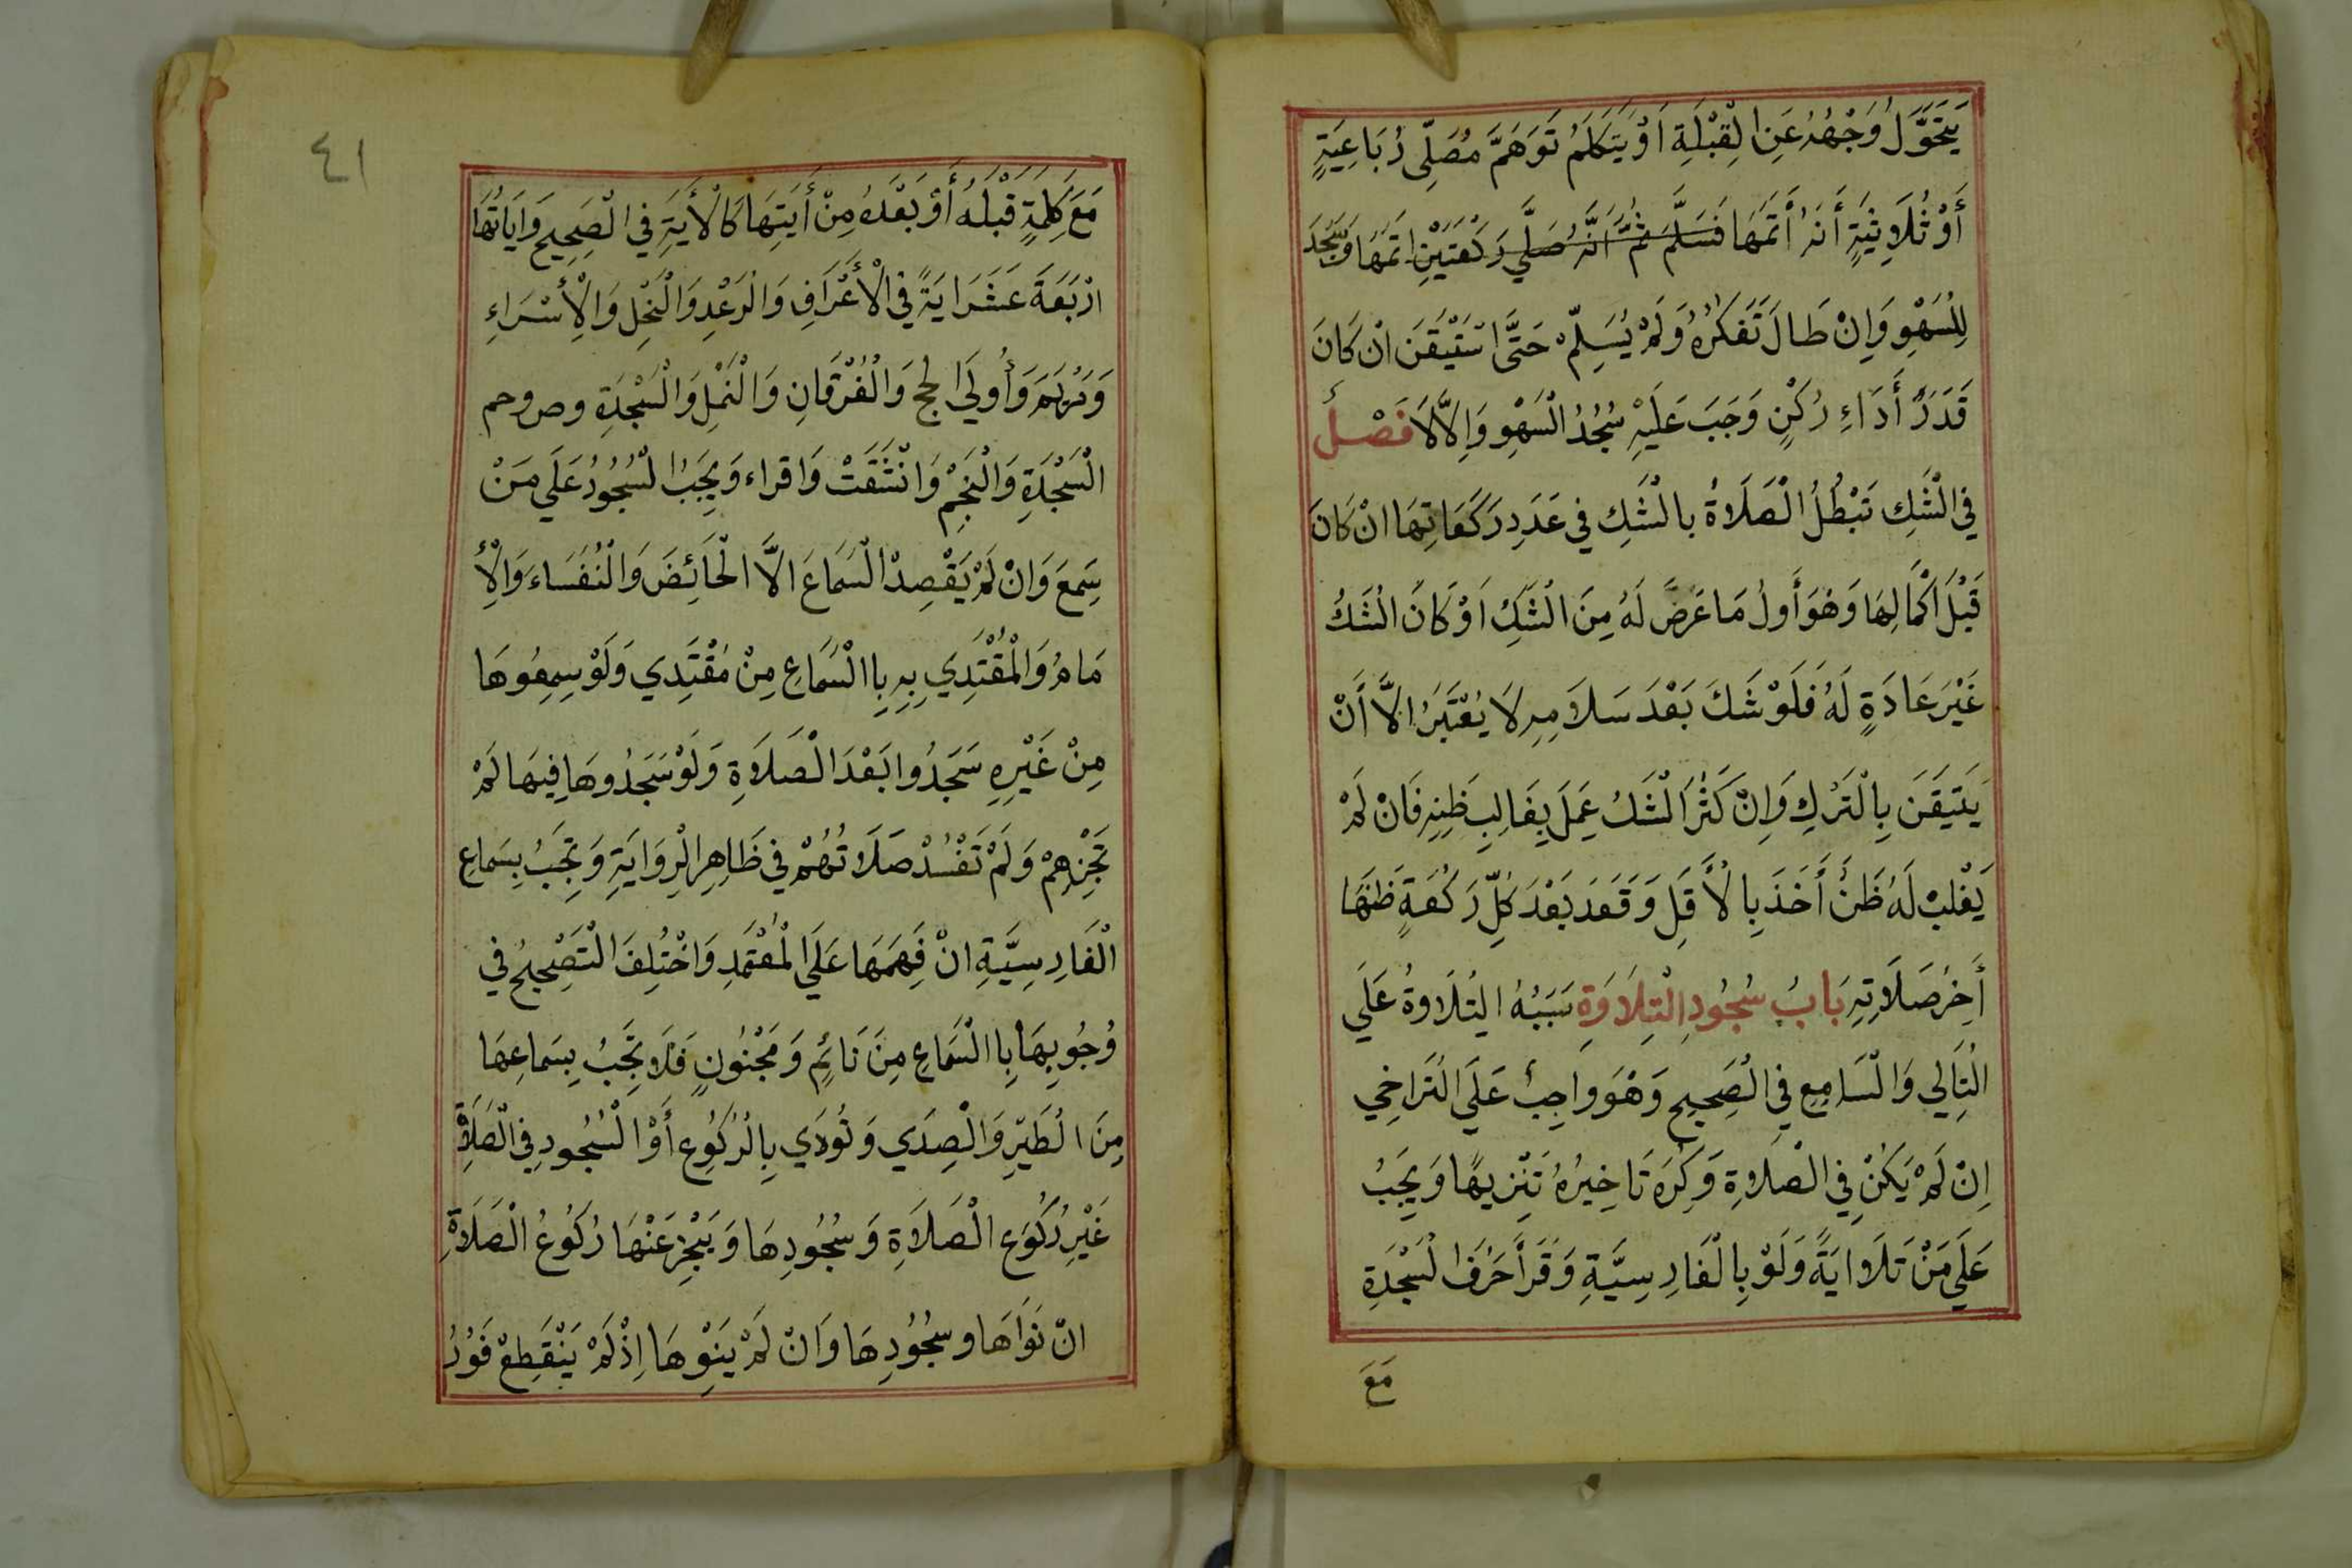 يَتَحَوَّلُ وَجْهُهُ عَنِ الْقِبْلَةِ اَوْ يَتَكَلَمُ تَوَهَمَّ مُصَلِّى رُبَاعِيَةٍ
أَوْ ثُلَاثِيَةٍ أَنَهُ أَتَمَّهَا فَسَلَّمَ ثُمَّ اَنَّهُ صَلَّي رَكْعَتَيْنِ اتَمَهَا وَسَجَدَ
لِلْسَهْوِ وَاِنْ طَالَ تَفَكرُهُ وَلَمْ يُسَلِّمْ حَتَّى اسْتَيْقَنَ انْ كَانَ
قَدَرَ أَدَاءِ رُكْنٍ وَجَبَ عَلَيْهِ سُجُدُ الْسَهْوِ وَاِلاَّ لَا فَصْلُ
فِي الْشَكِ تَبْطُلُ الْصَلَاةُ بالْشَكِ فِي عَدَدِ رَكَعَاتِهَا انْ كَانَ
قَبْلَ اَكْمَالِهَا وَهُوَ أَولُ مَا عَرَضَ لَهُ مِنَ الْشَكِ اَوْ كَانَ الْشَكُ
غَيْرَ عَادَةٍ لَهُ فَلَوْ شَكَ بَعْدَ سَلَامِهِ لَا يُعْتَبَرُ الاَّ أَنْ
يَتَيَقَنَ بِالْتَرْكِ وَاِنْ كَثُرَ الْشَكُ عَمِلَ بِغَالِبِ ظَنِهِ فَانْ لَمْ
يَغْلِبْ لَهُ ظَنٌّ أَخَذَ بِالْأَقَلِ وَقَعَدَ بَعْدَ كُلِّ رَكْعَةٍ ظَنَهَا
أَخِرُ صَلَاتِهِ بَابُ سُجُودِ الْتِلَاوَةِ سَبَبُهُ الْتِلَاوةُ عَلَي
الْتَالِي وَالْسَامِعِ فِي الْصَحِيحِ وَهُوَ وَاجِبٌ عَلَى الْتَرَاخِي
اِنْ لَمْ يَكُنْ فِي الْصَلَاوةِ وَكُرِهَ تَاخِيرُهُ تَنْزِيهًا وَيَجِبُ
عَلَي مَنْ تَلَا ايَةً وَلَوْ بِالْفَارِسِيَّةِ وَقَرَأَ حَرْفَ الْسَجْدَةِ
مَعَ
٤١
مَعَ كَلِمَةٍ قَبْلَهُ أَوْ بَعْدَهُ مِنْ أَيَتِهَا كَالْأَيَةِ فِي الْصَحِيحِ وَايَاتُهَا
ارْبَعَةَ عَشَرَ ايَةً فِي الْأَعْرَافِ وَالْرَعْدِ وَالْنَحْلِ وَالْأِسْرَاءِ
وَمَرْيَمَ وَأُولَي الحج وَالْفُرْقَانِ وَالْنَمْلِ وَالْسَجْدَةِ وص وحم
الْسَجْدَةِ وَالْنَجِمْ وَانْشَقَتْ وَاقراء وَيَجِبُ الْسُجُودُ عَلَي مَنْ
سَمِعَ وَانْ لَمْ يَقْصِدْ الْسَمَاعَ الاَّ الْحَائِضَ وَالْنُفَسَاءَ وَالْأِ
مَامُ وَالْمُقْتَدِي بِهِ بِاالْسَمَاعِ مِنْ مُقْتَدِي وَلَوْ سِمِعُوهَا
مِنْ غَيْرِهِ سَجَدُوا بَعْدَ الْصَلَاوَةِ وَلَوْ سَجَدُوهَا فِيهَا لَمْ
تَجْزِهِمْ وَلَمْ تَفْسُدْ صَلَاتُهُمْ فِي ظَاهِرِ الْرِوَايَةِ وَتَجِبُ بِسَماعِ
الْفَارِسِيَّةِ انْ فَهِمَهَا عَلَي الْمُعْتَمَدِ وَاخْتُلِفَ الْتَصْحِيحُ فِي
وُجُوبِهَا بِاالْسَمَاعِ مِنَ نَائِمٍ وَمَجْنُونٍ فَلَا تَجِبُ بِسَماعِهَا
مِنَ الْطَيِرِ وَالْصِدَي وَتُودَي بِالْرُكُوعِ أَوْ الْسُجُودِ فِي الْصَلَاةِ
غَيْرِ رُكُوعِ الْصَلَاةِ وَسُجُودِهَا وَيَجْزِ عَنْهَا رُكُوعُ الْصَلَاةِ
انْ نَوَاهَا وسُجُودِهَا وَانْ لَمْ يَنْوِهَا اِذْ لَمْ يَنْقَطِعْ فَوْرُ